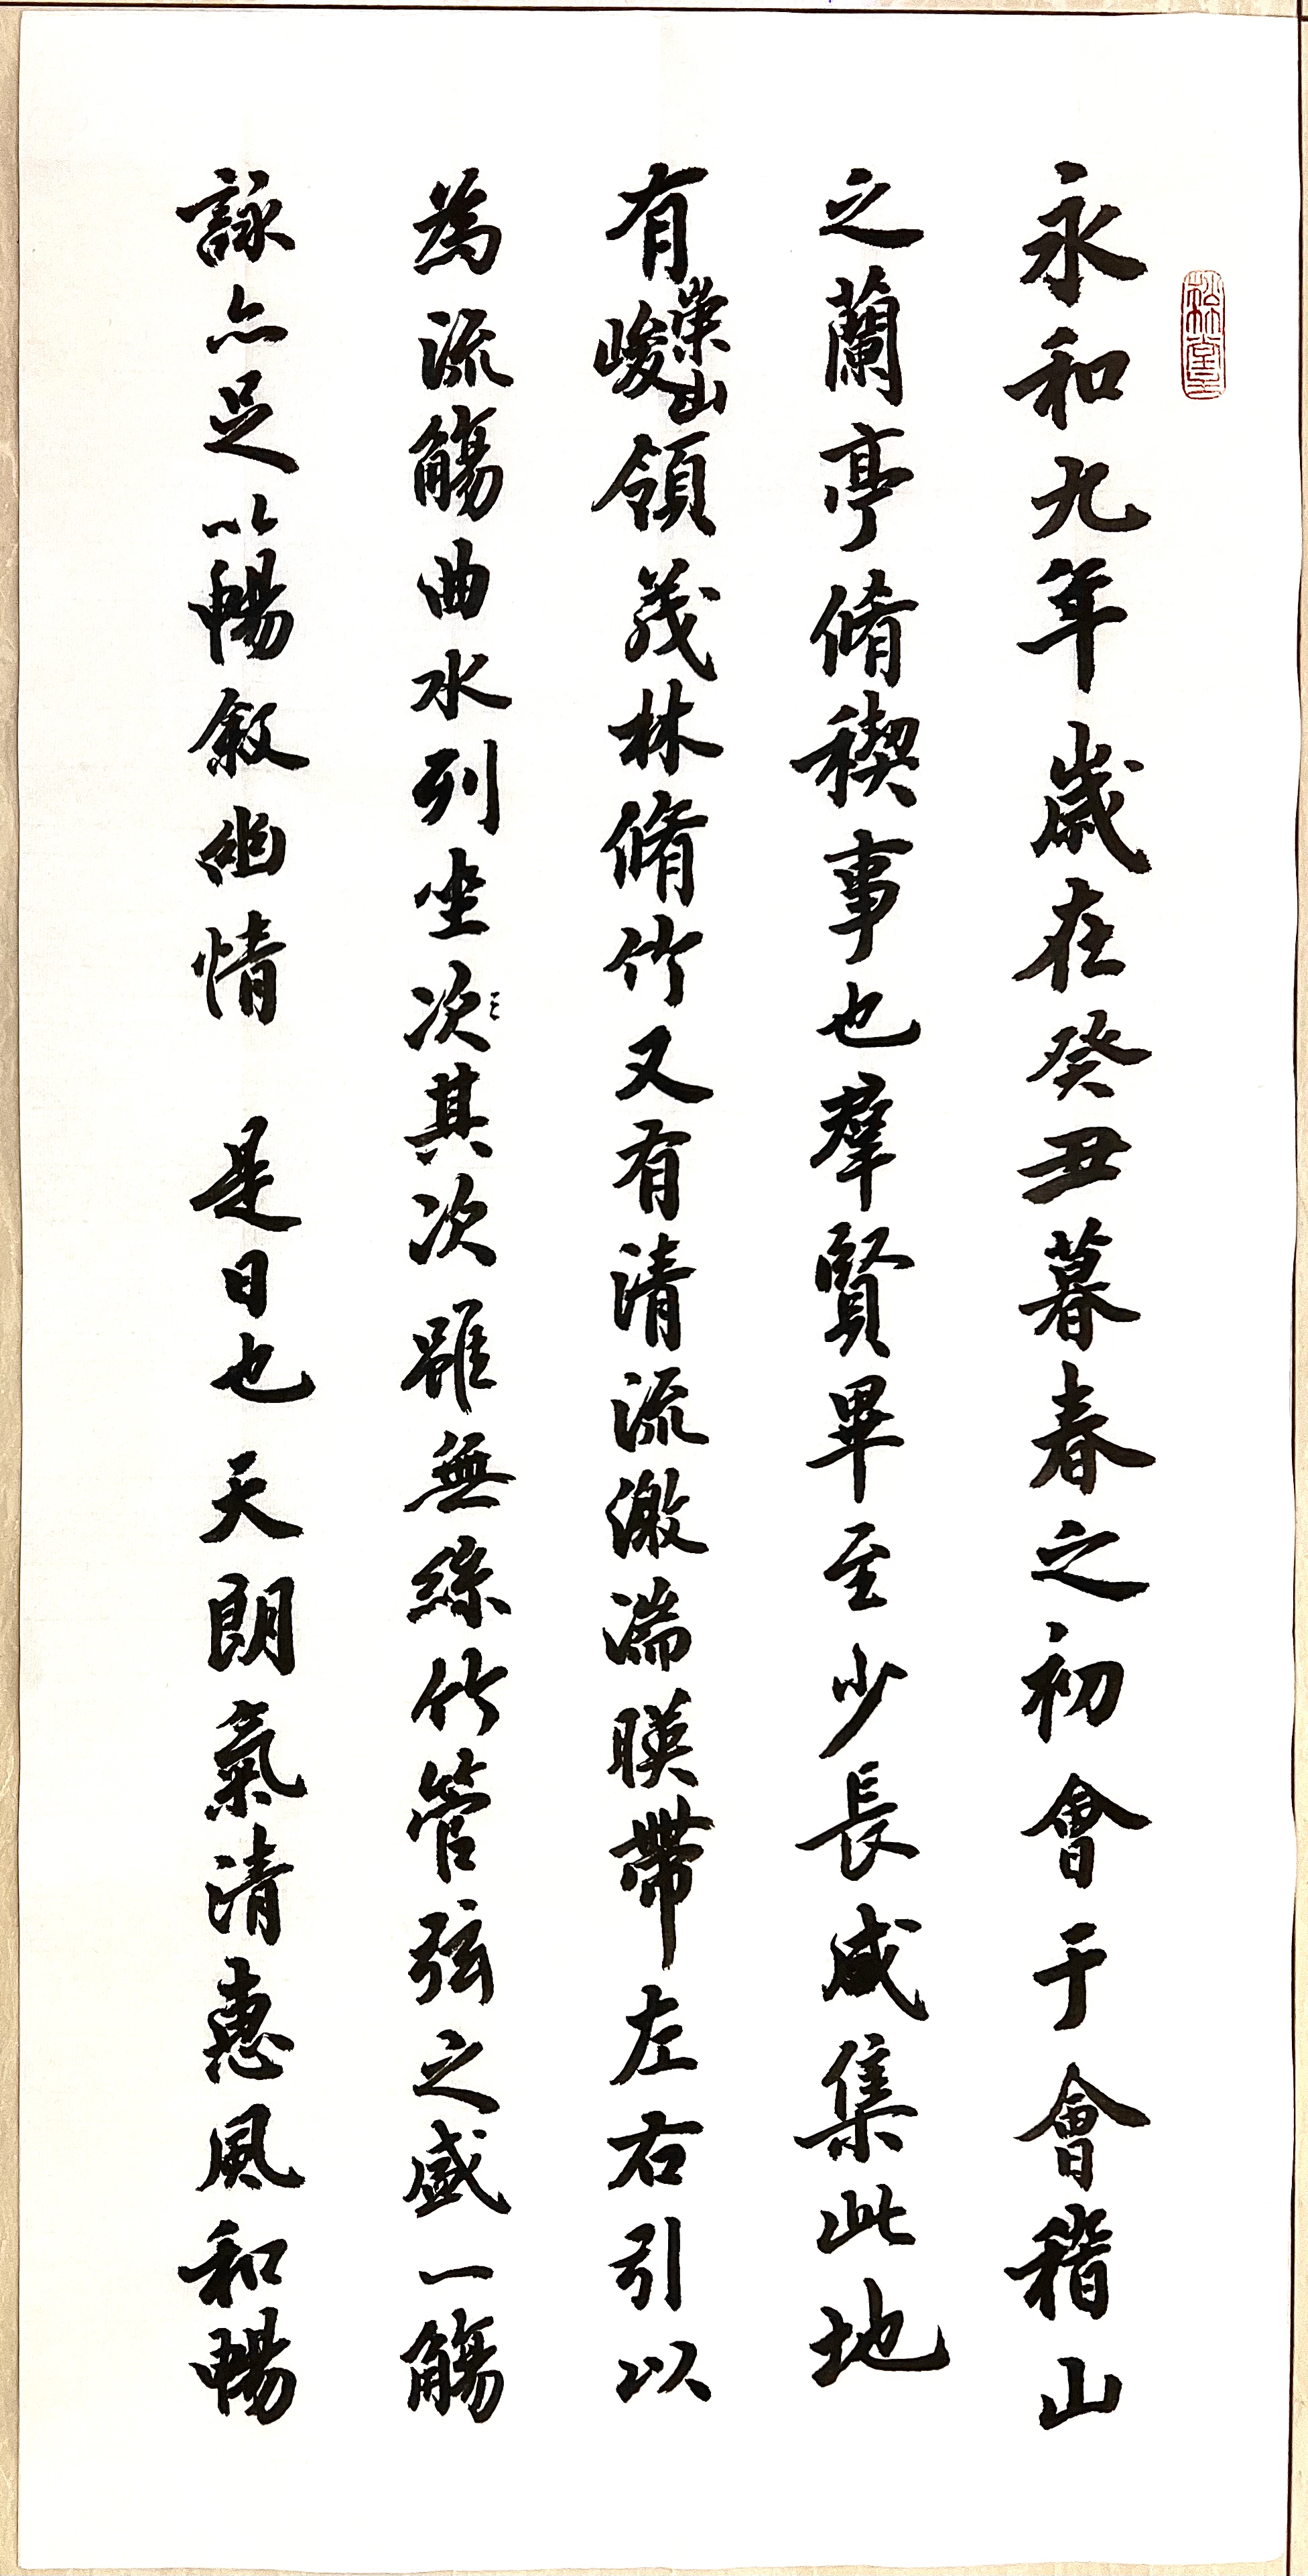 永和九年歲在癸丑暮春之初會于會稽山
之蘭亭脩稧事也羣賢畢至少長咸集此地
有崇山峻領茂林脩竹又有清流激湍暎帶左右引以
為流觴曲水列坐次其次雖無絲竹管弦之盛一觴
詠亦足以暢敘幽情 是日也天朗氣清惠風和暢